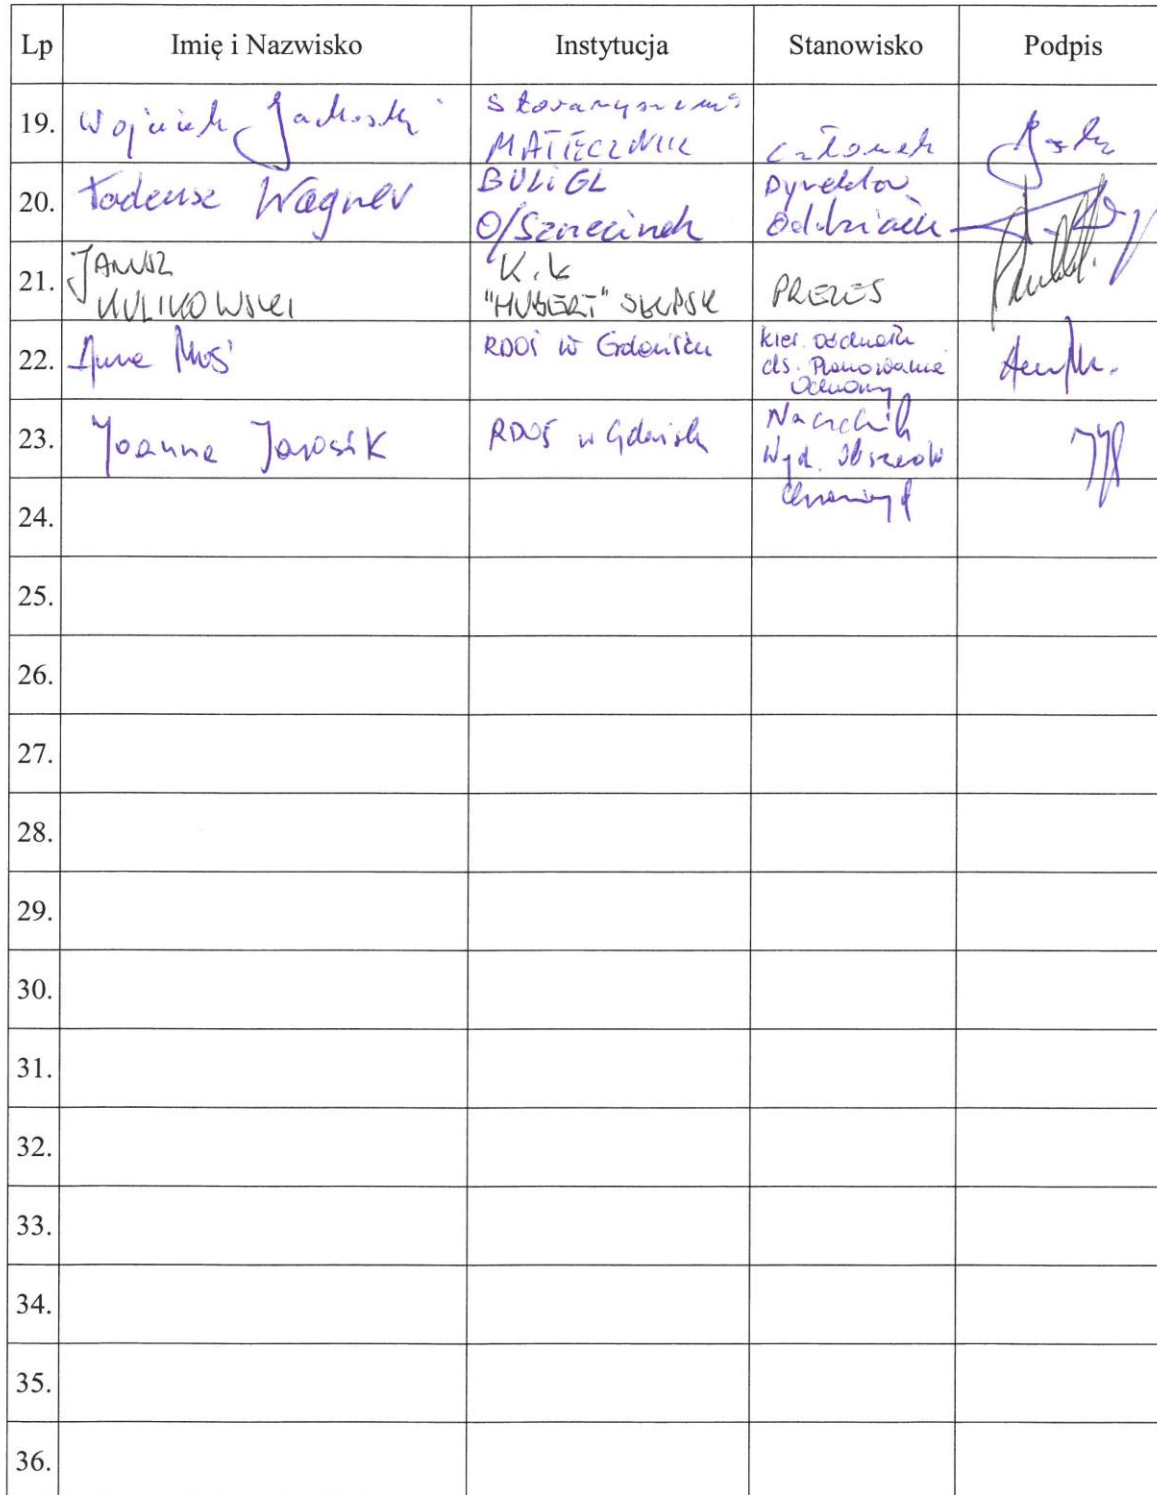 Lp Imię i Nazwisko Instytucja Stanowisko Podpis
19. Wojciech Stowarzyszenie
MATECZNIK członek
20. Tadeusz Wagner BULiGL Dyrektor
O/Szczecinek Oddziału
21. JANUSZ K.Ł
KULIKOWSKI "HUBERT" SŁUPSK PREZES
22. Anna Moś RDOŚ w Gdańsku Kier. oddziału
ds. Planowania
Ochrony
23. Joanna Jarosik RDOŚ w Gdańsk Naczelnik
Wydz. Obszarów
24. Chronionych
25.
26.
27.
28.
29.
30.
31.
32.
33.
34.
35.
36.